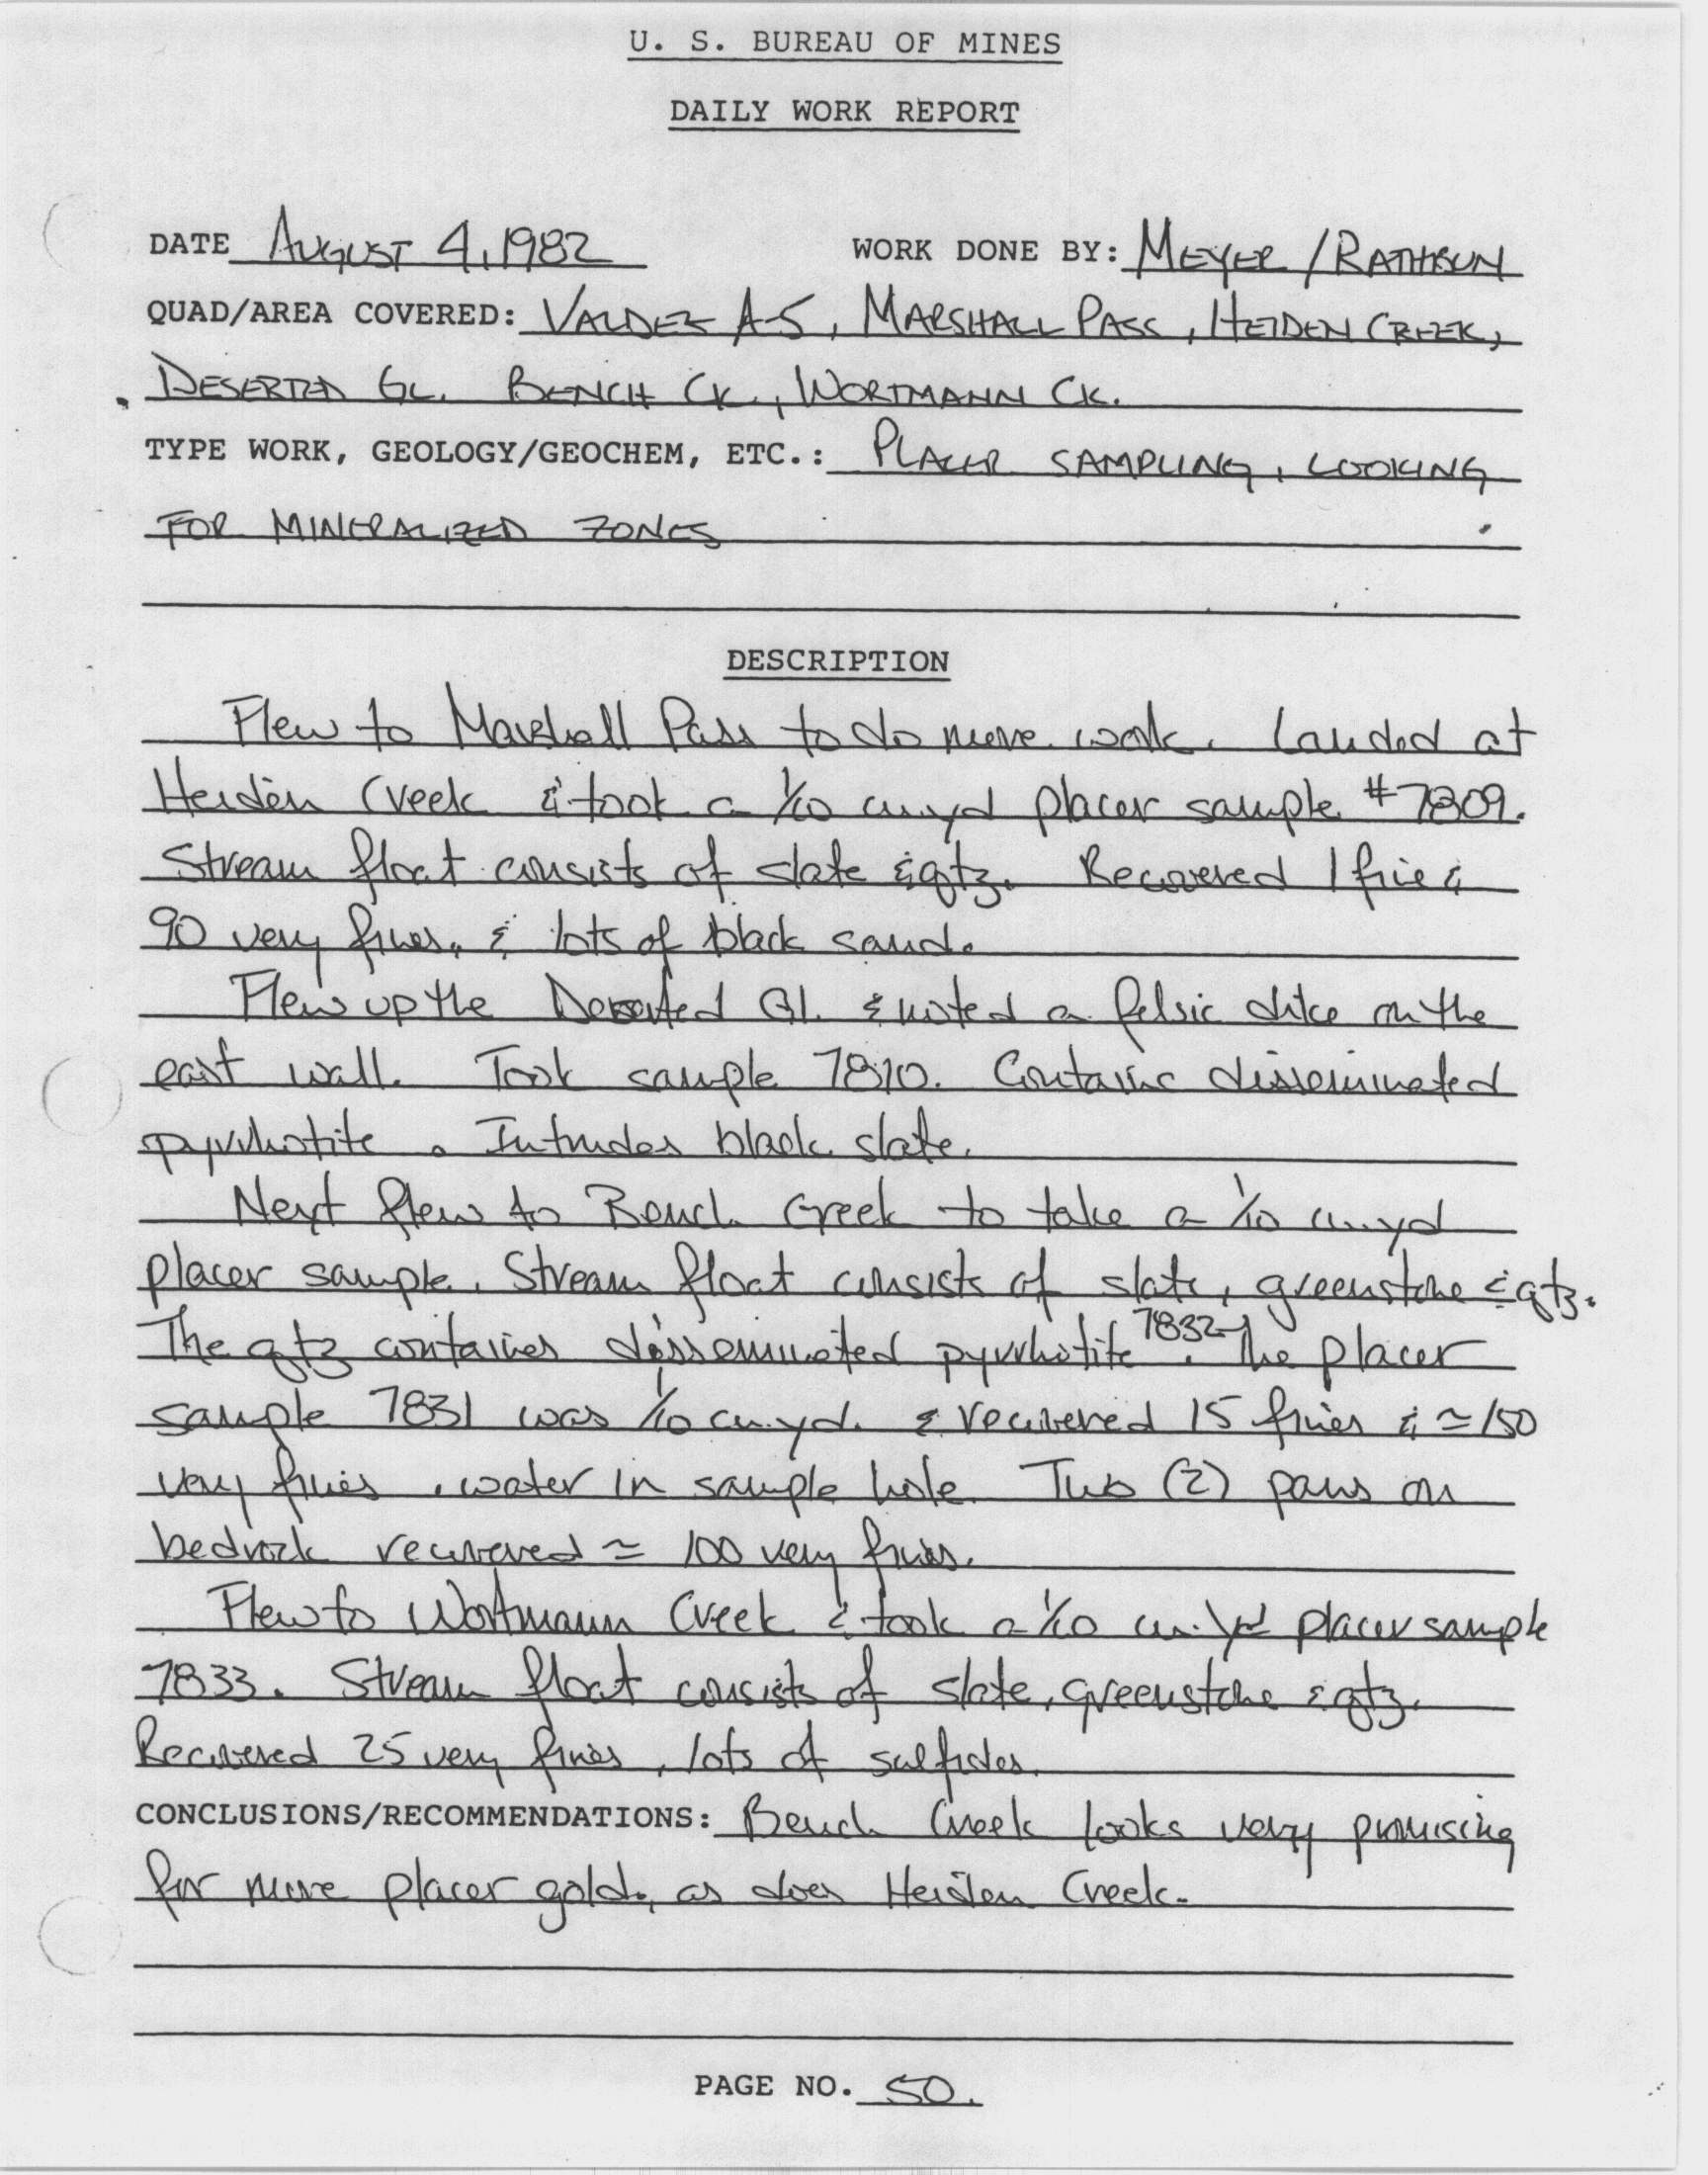 U. S. BUREAU OF MINES
DAILY WORK REPORT
DATE AUGUST 4, 1982 WORK DONE BY: MEYER / RATHBUN
QUAD/AREA COVERED: VALDEZ A-5, MARSHALL PASS, HEIDEN CREEK,
DESERTED GL. BENCH CK., WORTMANN CK.
TYPE WORK, GEOLOGY/GEOCHEM, ETC.: PLACER SAMPLING, LOOKING
FOR MINERALIZED ZONES
DESCRIPTION
Flew to Marshall Pass to do more work. Landed at
Heiden Creek & took a 1/10 cu yd placer sample #7809.
Stream float consists of slate & qtz. Recovered 1 fine &
90 very fines, & lots of black sand.
Flew up the Deserted Gl. & noted a felsic dike on the
east wall. Took sample 7810. Contains disseminated
pyrrhotite. Intrudes black slate.
Next flew to Bench Creek to take a 1/10 cu.yd
placer sample. Stream float consists of slate, greenstone & qtz.
The qtz contains disseminated pyrrhotite 7832. The placer
sample 7831 was 1/10 cu.yd. & recovered 15 fines & ≈ 150
very fines, water in sample hole. Two (2) pans on
bedrock recovered ≈ 100 very fines.
Flew to Wortmann Creek & took a 1/10 cu. yd placer sample
7833. Stream float consists of slate, greenstone & qtz.
Recovered 25 very fines, lots of sulfides.
CONCLUSIONS/RECOMMENDATIONS: Bench Creek looks very promising
for more placer gold, as does Heiden Creek.
PAGE NO. 50.